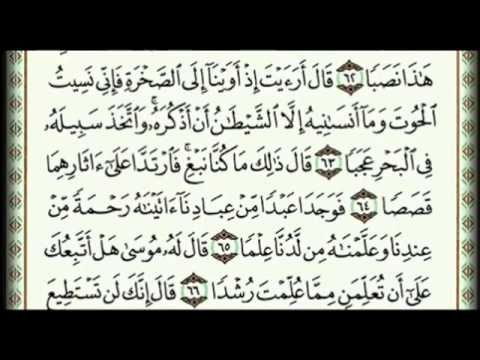 هَٰذَا نَصَبًا ٦٢ قَالَ أَرَءَيْتَ إِذْ أَوَيْنَآ إِلَى ٱلصَّخْرَةِ فَإِنِّى نَسِيتُ
ٱلْحُوتَ وَمَآ أَنسَىٰنِيهُ إِلَّا ٱلشَّيْطَـٰنُ أَنْ أَذْكُرَهُۥ ۚ وَٱتَّخَذَ سَبِيلَهُۥ
فِى ٱلْبَحْرِ عَجَبًا ٦٣ قَالَ ذَٰلِكَ مَا كُنَّا نَبْغِ ۚ فَٱرْتَدَّا عَلَىٰٓ ءَاثَارِهِمَا
قَصَصًا ٦٤ فَوَجَدَا عَبْدًا مِّنْ عِبَادِنَآ ءَاتَيْنَـٰهُ رَحْمَةً مِّنْ
عِندِنَا وَعَلَّمْنَـٰهُ مِن لَّدُنَّا عِلْمًا ٦٥ قَالَ لَهُۥ مُوسَىٰ هَلْ أَتَّبِعُكَ
عَلَىٰٓ أَن تُعَلِّمَنِ مِمَّا عُلِّمْتَ رُشْدًا ٦٦ قَالَ إِنَّكَ لَن تَسْتَطِيعَ